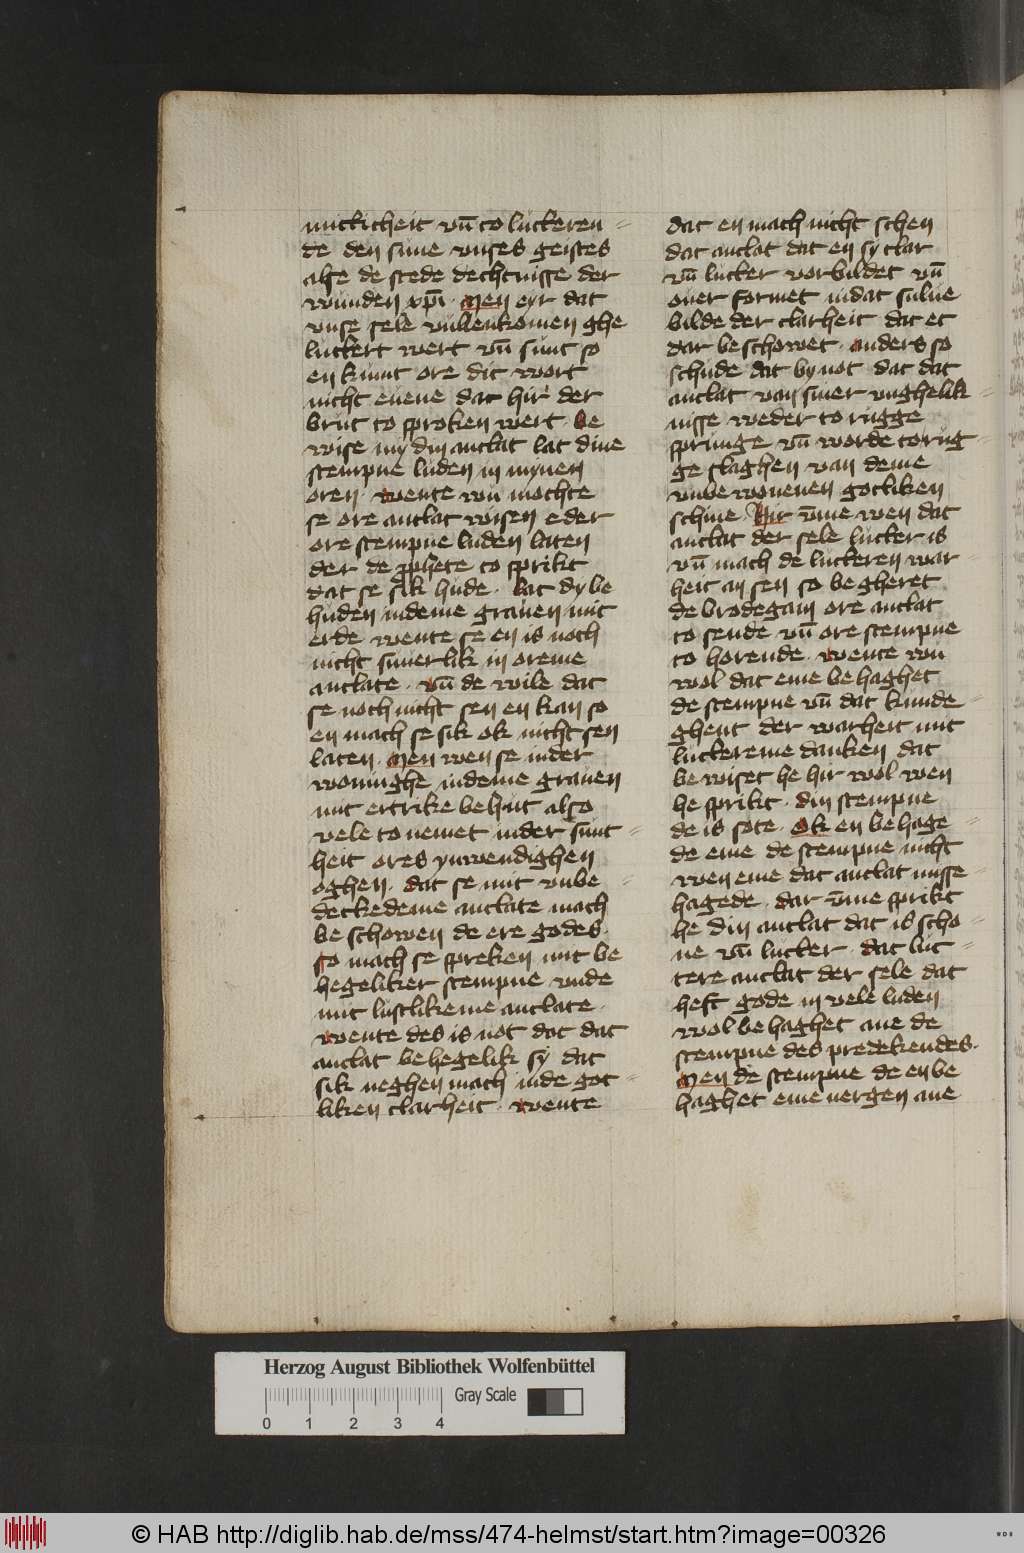 nutticheit vn̄ to lutteren
de den sinne vnses geistes
alse de stede dechtnisse der
wunden xp̄i · Men eyr dat
vnse sele vullenkomen ghe
luttert wert vn̄ sunt so
en kumt ore dit wort
nicht euene dat hir der
brut to sproken wert · be
wise my din antlat lat dine
stempne luden in mynen
oren · wente wu mochte
se ore antlat wisen eder
ore stempne luden laten
der de prophete to sprikt
dat se sik hude · lat dy be
huden indeme grauen mit
erde wente se en is noch
nicht suuerlik in oreme
antlate · vn̄ de wile dat
se noch nicht sen en kan so
en mach se sik ok nicht sen
laten · Men wen se in der
woninghe indeme grauen
mit ertrike behut also
vele to nemet in der sunt
heit ores ynwendighen
oghen · dat se mit vnbe
deckedeme antlate mach
be schowen de ere godes ·
so mach se spreken mit be
hegeliker stempne vnde
mit lustlikeme antlate ·
wente des is not dat dat
antlat behegelik sy dat
sik neghen mach in de got
liken clarheit · wente
dat en mach nicht schen
dat antlat dat en sy clar
vn̄ lutter vorbildet vn̄
ouer formet in dat sulue
bilde der clarheit dat et
dar beschowet · anders so
schude dat by not dat dat
antlat van siner vnghelik
nisse weder to rugge
sprunge vn̄ worde to rug
ge slaghen van deme
vnbewonenen gotliken
schine · Hir v̄me wen dat
antlat der sele lutter is
vn̄ mach de lutteren war
heit an sen so begheret
de brodegam ore antlat
to sende vn̄ ore stempne
to horende · wente wu
wol dat eme behaghet
de stempne vn̄ dat kunde
ghent der warheit mit
luttereme danken dat
bewiset he hir wol wen
he sprikt · din stempne
de is sote · Ok en behage
de eme de stempne nicht
wen eme dat antlat misse
hagede · dar v̄me sprikt
he din antlat dat is scho
ne vn̄ lutter · dat lut
tere antlat der sele dat
heft gode in vele luden
wol behaghet ane de
stempne des predekendes ·
Men de stempne de en be
haghet eme nergen ane
Herzog August Bibliothek Wolfenbüttel
Gray Scale
0 1 2 3 4
© HAB http://diglib.hab.de/mss/474-helmst/start.htm?image=00326